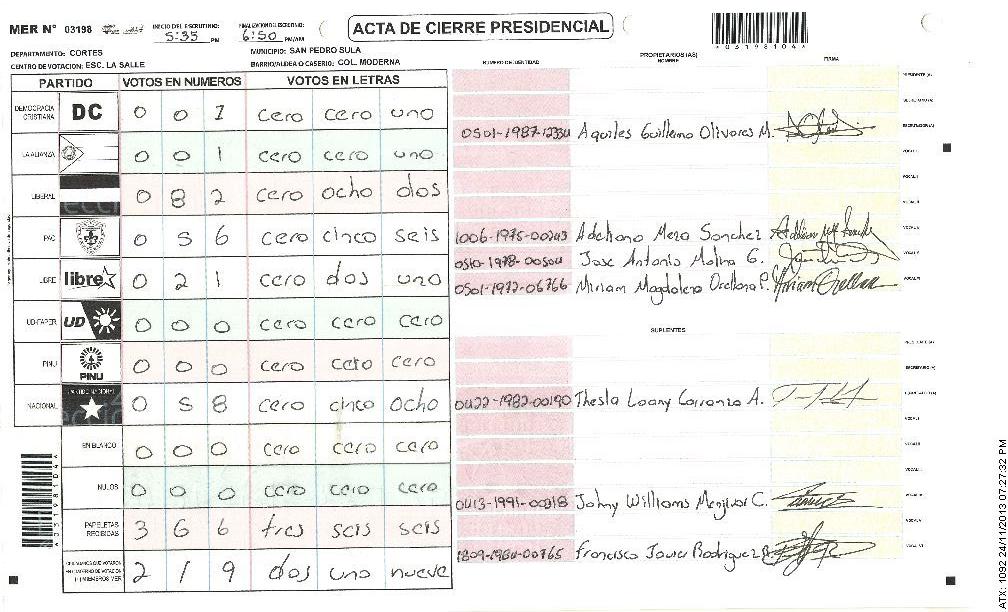 MER N° 03198
INICIO DEL ESCRUTINIO: 5:35 PM
FINALIZACION DEL ESCRUTINIO: 6:50 PM/AM
ACTA DE CIERRE PRESIDENCIAL
*03198104*
DEPARTAMENTO: CORTES
MUNICIPIO: SAN PEDRO SULA
CENTRO DE VOTACION: ESC. LA SALLE
BARRIO/ALDEA O CASERIO: COL. MODERNA
PARTIDO VOTOS EN NUMEROS VOTOS EN LETRAS
DEMOCRACIA CRISTIANA DC 0 0 1 cero cero uno
LA ALIANZA 0 0 1 cero cero uno
LIBERAL 0 8 2 cero ocho dos
PAC 0 5 6 cero cinco seis
LIBRE libre 0 2 1 cero dos uno
UD-FAPER UD 0 0 0 cero cero cero
PINU PINU 0 0 0 cero cero cero
NACIONAL PARTIDO NACIONAL 0 5 8 cero cinco ocho
EN BLANCO 0 0 0 cero cero cero
NULOS 0 0 0 cero cero cero
PAPELETAS RECIBIDAS 3 6 6 tres seis seis
CIUDADANOS QUE VOTARON 2 1 9 dos uno nueve
NUMERO DE IDENTIDAD PROPIETARIOS (AS) NOMBRE FIRMA
PRESIDENTE (A)
SECRETARIO (A)
Aquiles Guillermo Olivares M. ESCRUTADOR (A)
VOCAL I
VOCAL II
VOCAL III
1006-1975-00243 Adelhano Meza Sanchez
0510-1978-00504 Jose Antonio Molina G.
0501-1972-06766 Miriam Magdalena Orellana P.
SUPLENTES
PRESIDENTE (A)
SECRETARIO (A)
0422-1982-00190 Thesla Loany Carranza A.
VOCAL I
VOCAL II
VOCAL III
0413-1991-00318 Johny Williams Menjivar C.
1809-1984-00765 Francisco Javier Rodriguez
ATX: 1092 24/11/2013 07:27:32 PM